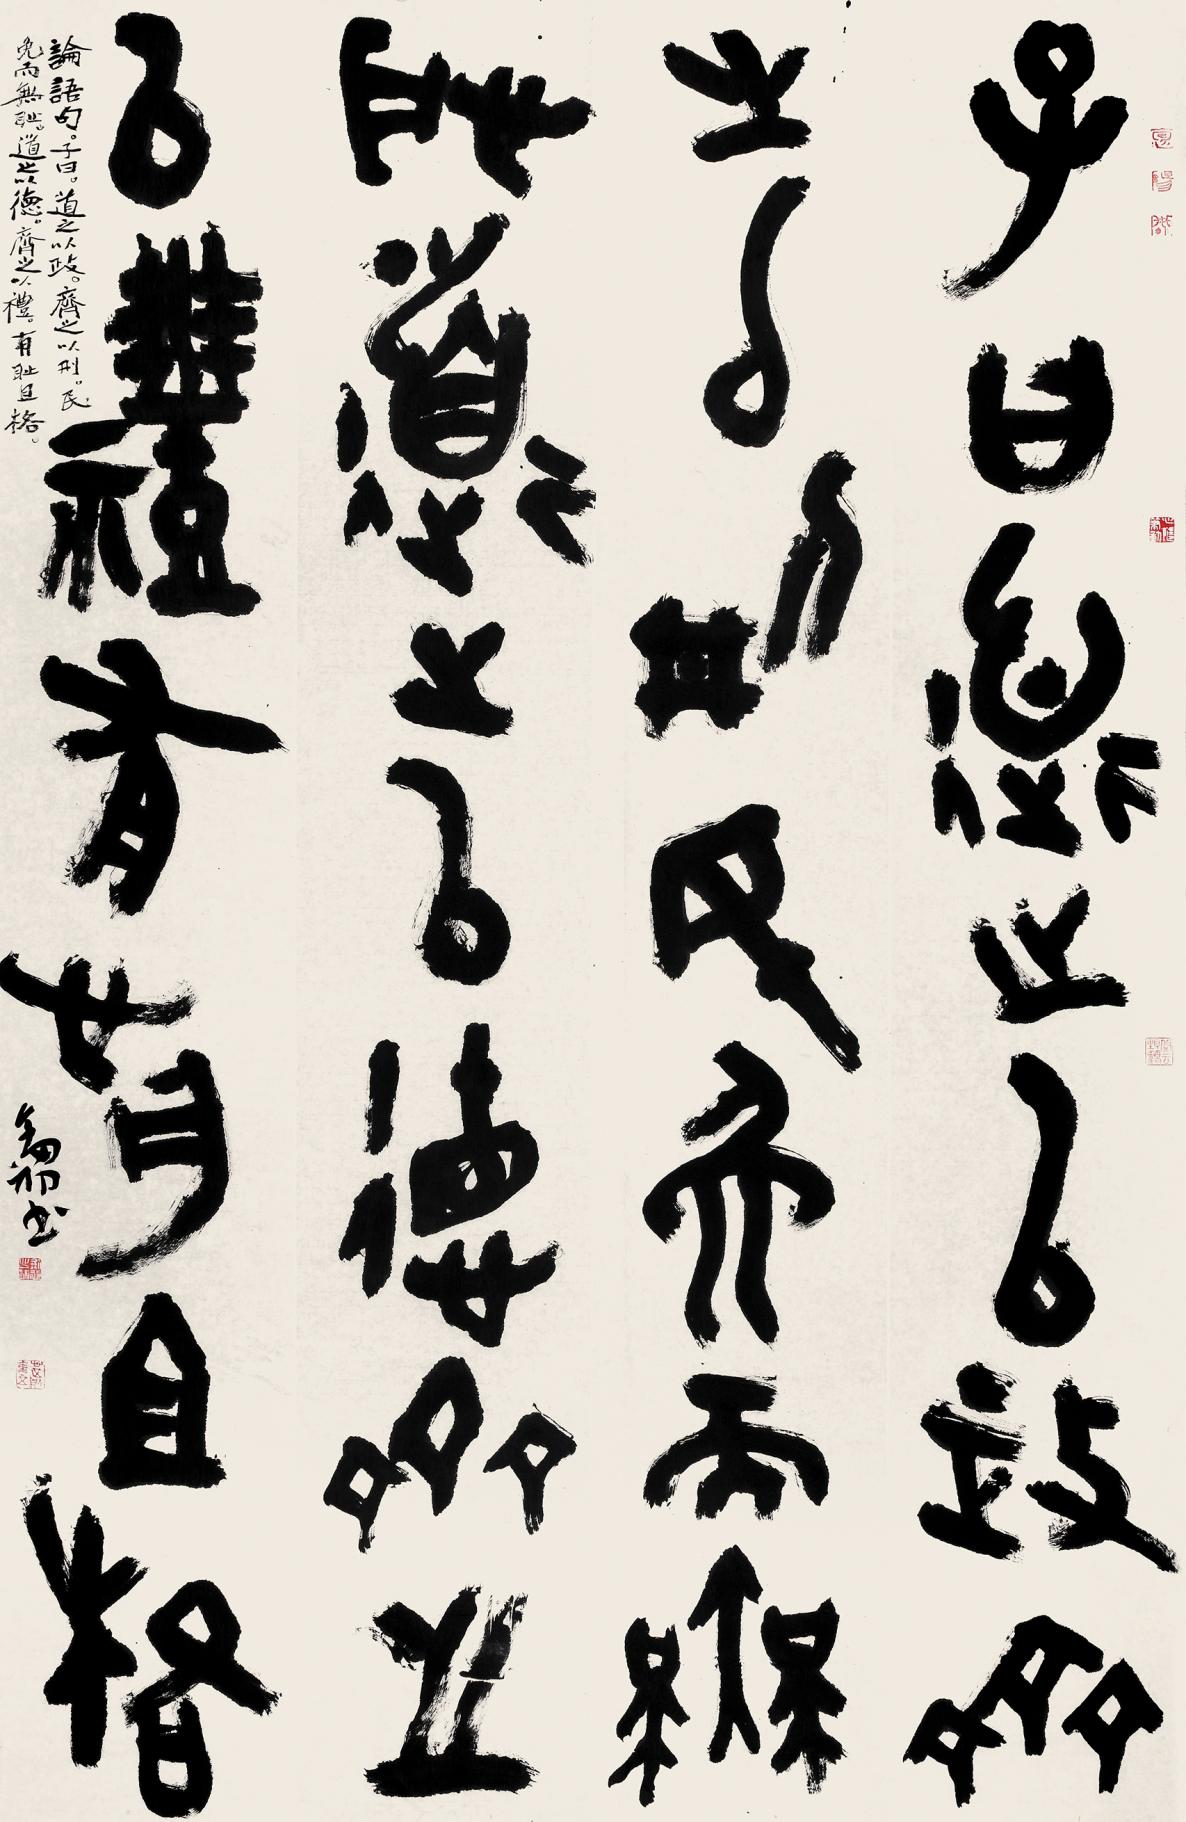 子曰道之以政齊
之以刑民免而無
耻道之以德齊之
以禮有耻且格
論語句。子曰。道之以政。齊之以刑。民
免而無耻。道之以德。齊之以禮。有耻且格。
书